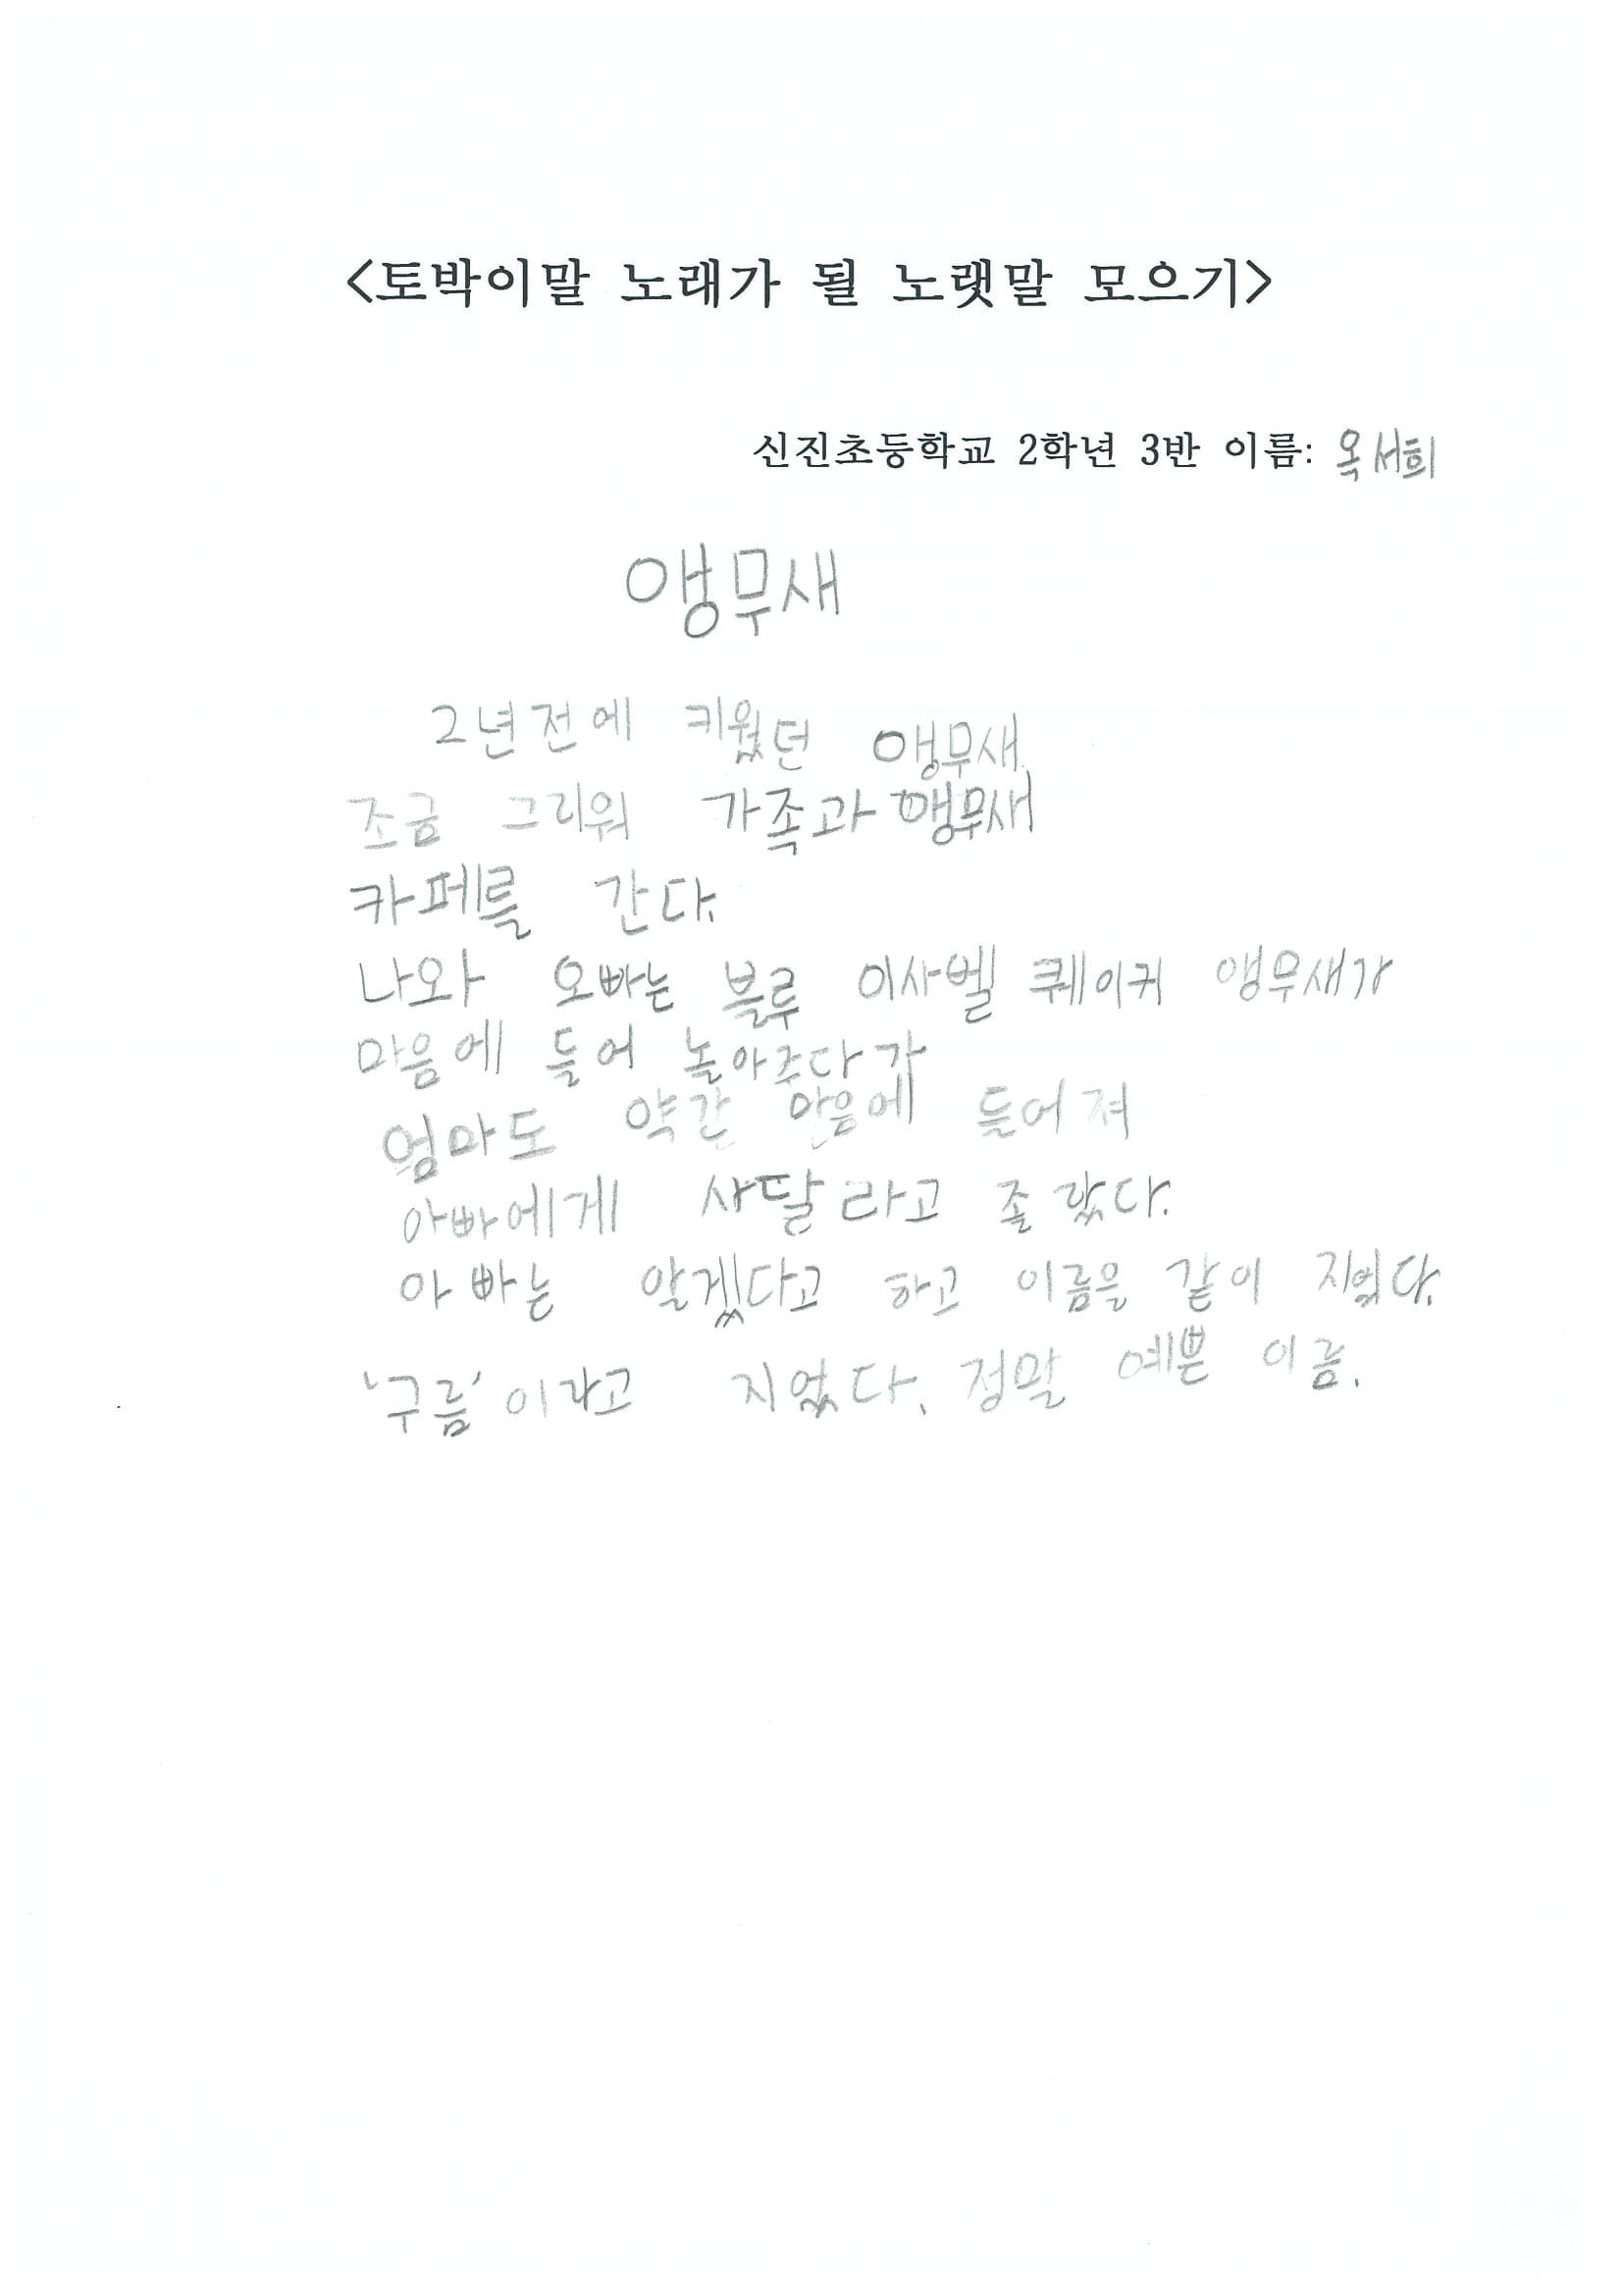 <토박이말 노래가 될 노랫말 모으기>
신진초등학교 2학년 3반 이름: 옥서희
앵무새
2년전에 키웠던 앵무새.
조금 그리워 가족과 앵무새
카페를 간다.
나와 오빠는 블루 이사벨 퀘이커 앵무새가
마음에 들어 놀아주다가
엄마도 약간 마음에 들어져
아빠에게 사달라고 졸랐다.
아빠는 알겠다고 하고 이름을 같이 지었다.
'구름'이라고 지었다. 정말 예쁜 이름.